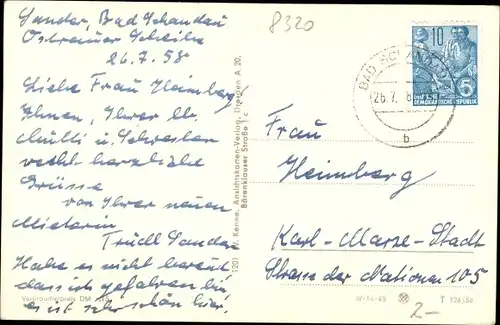 8320
Sander, Bad Schandau
Ostrauer Scheibe
26.7.58
Liebe Frau Heimberg
Ihnen, Ihrer lb.
Mutti u. Schwester
recht herzliche
Grüsse
von Ihrer neuen
Mieterin
Trudl Sander
Habe es nicht bereut
dass ich gefahren bin
es ist sehr schön hier!
Verbraucherpreis DM
Kenne, Ansichtskarten-Verlag, Dresden A 20,
Bärenklauser Straße 1 c
10
6
DEMOKRATISCHE REPUBLIK
BAD SCHANDAU
26.7.
b
Frau
Heimberg
Karl-Marx-Stadt
Strasse der Nationen 105
IV-14-45
T 126/56
2-